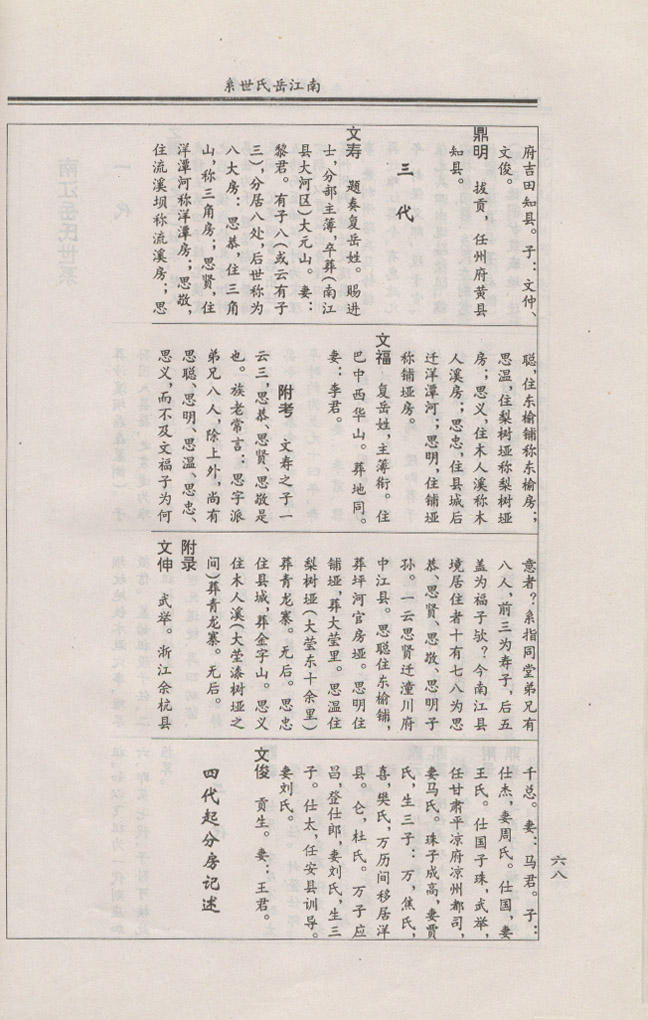 南江岳氏世系
府吉田知县。子：文仲、
文俊。
鼎明　拔贡，任州府黄县
知县。
三代
文寿　题奏复岳姓。赐进
士，分部主簿，卒葬（南江
县大河区）大元山。妻：
黎君。有子八（或云有子
三），分居八处，后世称为
八大房：思恭，住三角
山，称三角房；思贤，住
洋潭河称洋潭房；思敬，
住流溪坝称流溪房；思
聪，住东榆铺称东榆房；
思温，住梨树垭称梨树垭
房；思义，住木人溪称木
人溪房；思忠，住县城后
迁洋潭河；思明，住铺垭
称铺垭房。
文福　复岳姓，主簿衔。住
巴中西华山。葬地同。
妻：李君。
附考　文寿之子一
云三，思恭、思贤、思敬是
也。族老常言：思字派
弟兄八人，除上外，尚有
思聪、思明、思温、思忠、
思义，而不及文福子为何
意者？系指同堂弟兄有
八人，前三为寿子，后五
盖为福子欤？今南江县
境居住者十有七八为思
恭、思贤、思敬、思明子
孙。一云思贤迁潼川府
中江县。思聪住东榆铺，
葬坪河官房垭。思明住
铺垭，葬大茔里。思温住
梨树垭（大茔东十余里）
葬青龙寨。无后。思忠
住县城，葬金字山。思义
住木人溪（大茔漆树垭之
间）葬青龙寨。无后。
附录
文伸　武举。浙江余杭县
千总。妻：马君。子：
仕杰，妻周氏。仕国，妻
王氏。仕国子珠，武举，
任甘肃平凉府凉州都司，
妻马氏。珠子成高，妻贾
氏，生三子：万，焦氏，
喜，樊氏，万历间移居洋
县。仑，杜氏。万子应
昌，登仕郎，妻刘氏，生三
子。仕太，任安县训导。
妻刘氏。
文俊　贡生。妻：王君。
四代起分房记述
六八